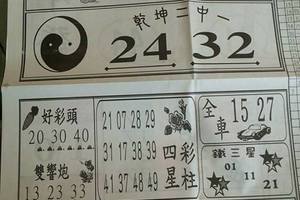 乾坤二中一
24 32
好彩頭
20 30 40
雙響炮
13 23 33
21 07 28 29
31 17 38 39
41 37 48 49
四彩
星柱
全車 15 27
鐵三星
01
11
21